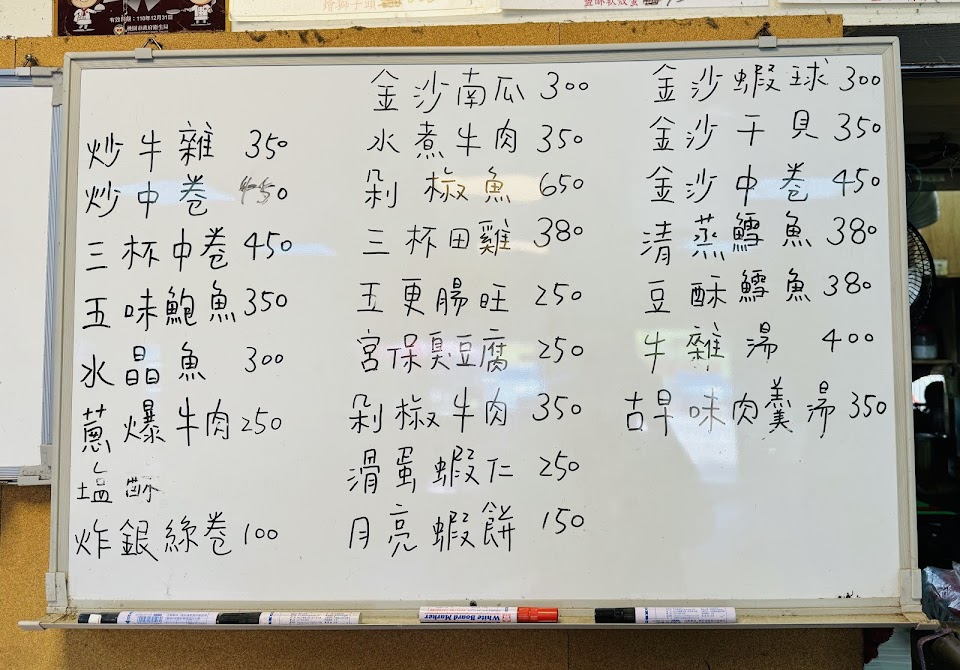 有效日期：110年12月31日
炒牛雜 350
炒中卷 450
三杯中卷 450
五味鮑魚 350
水晶魚 300
蔥爆牛肉 250
塩酥
炸銀絲卷 100
金沙南瓜 300
水煮牛肉 350
剁椒魚 650
三杯田雞 380
五更腸旺 250
宮保臭豆腐 250
剁椒牛肉 350
滑蛋蝦仁 250
月亮蝦餅 150
金沙蝦球 300
金沙干貝 350
金沙中卷 450
清蒸鱈魚 380
豆酥鱈魚 380
牛雜湯 400
古早味肉羹湯 350
White Board Marker